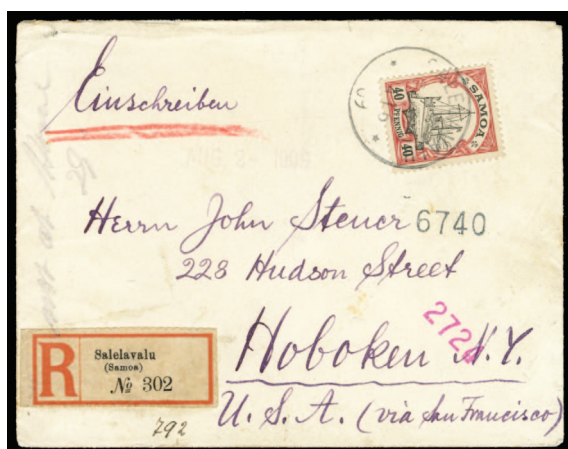 Einschreiben
SAMOA
40 PFENNIG 40
Herrn John Steuer 6740
228 Hudson Street
Hoboken N.Y.
272
U. S. A. (via San Francisco)
R
Salelavalu
(Samoa)
№ 302
792